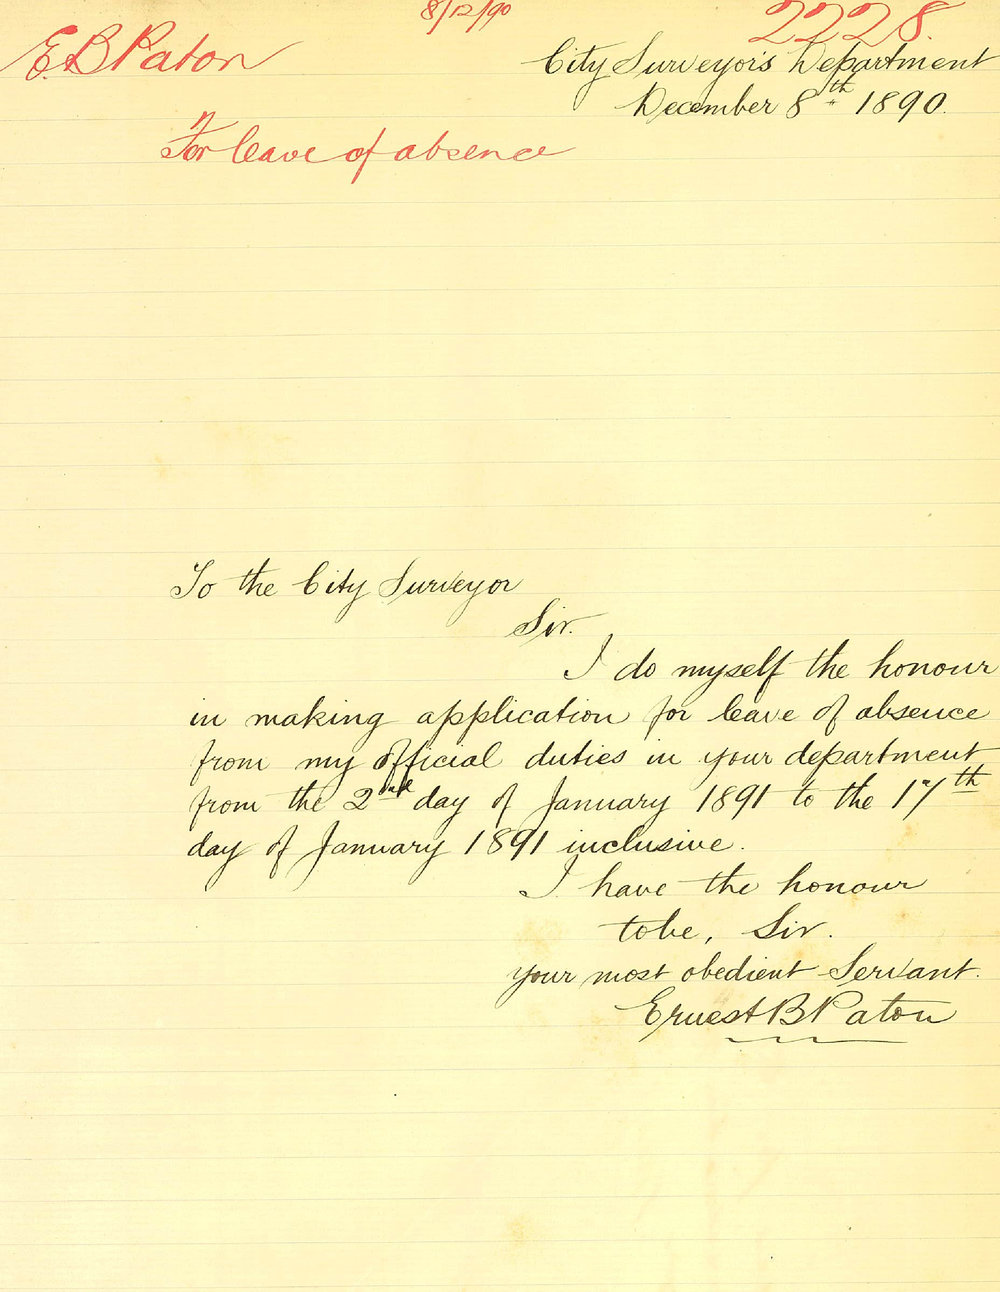 8/12/90
2228.
E. B Paton
City Surveyor's Department
December 8th 1890.
For leave of absence
To the City Surveyor
Sir.
I do myself the honour
in making application for leave of absence
from my official duties in your department
from the 2nd day of January 1891 to the 17th
day of January 1891 inclusive.
I have the honour
to be, Sir.
your most obedient Servant.
Ernest B Paton